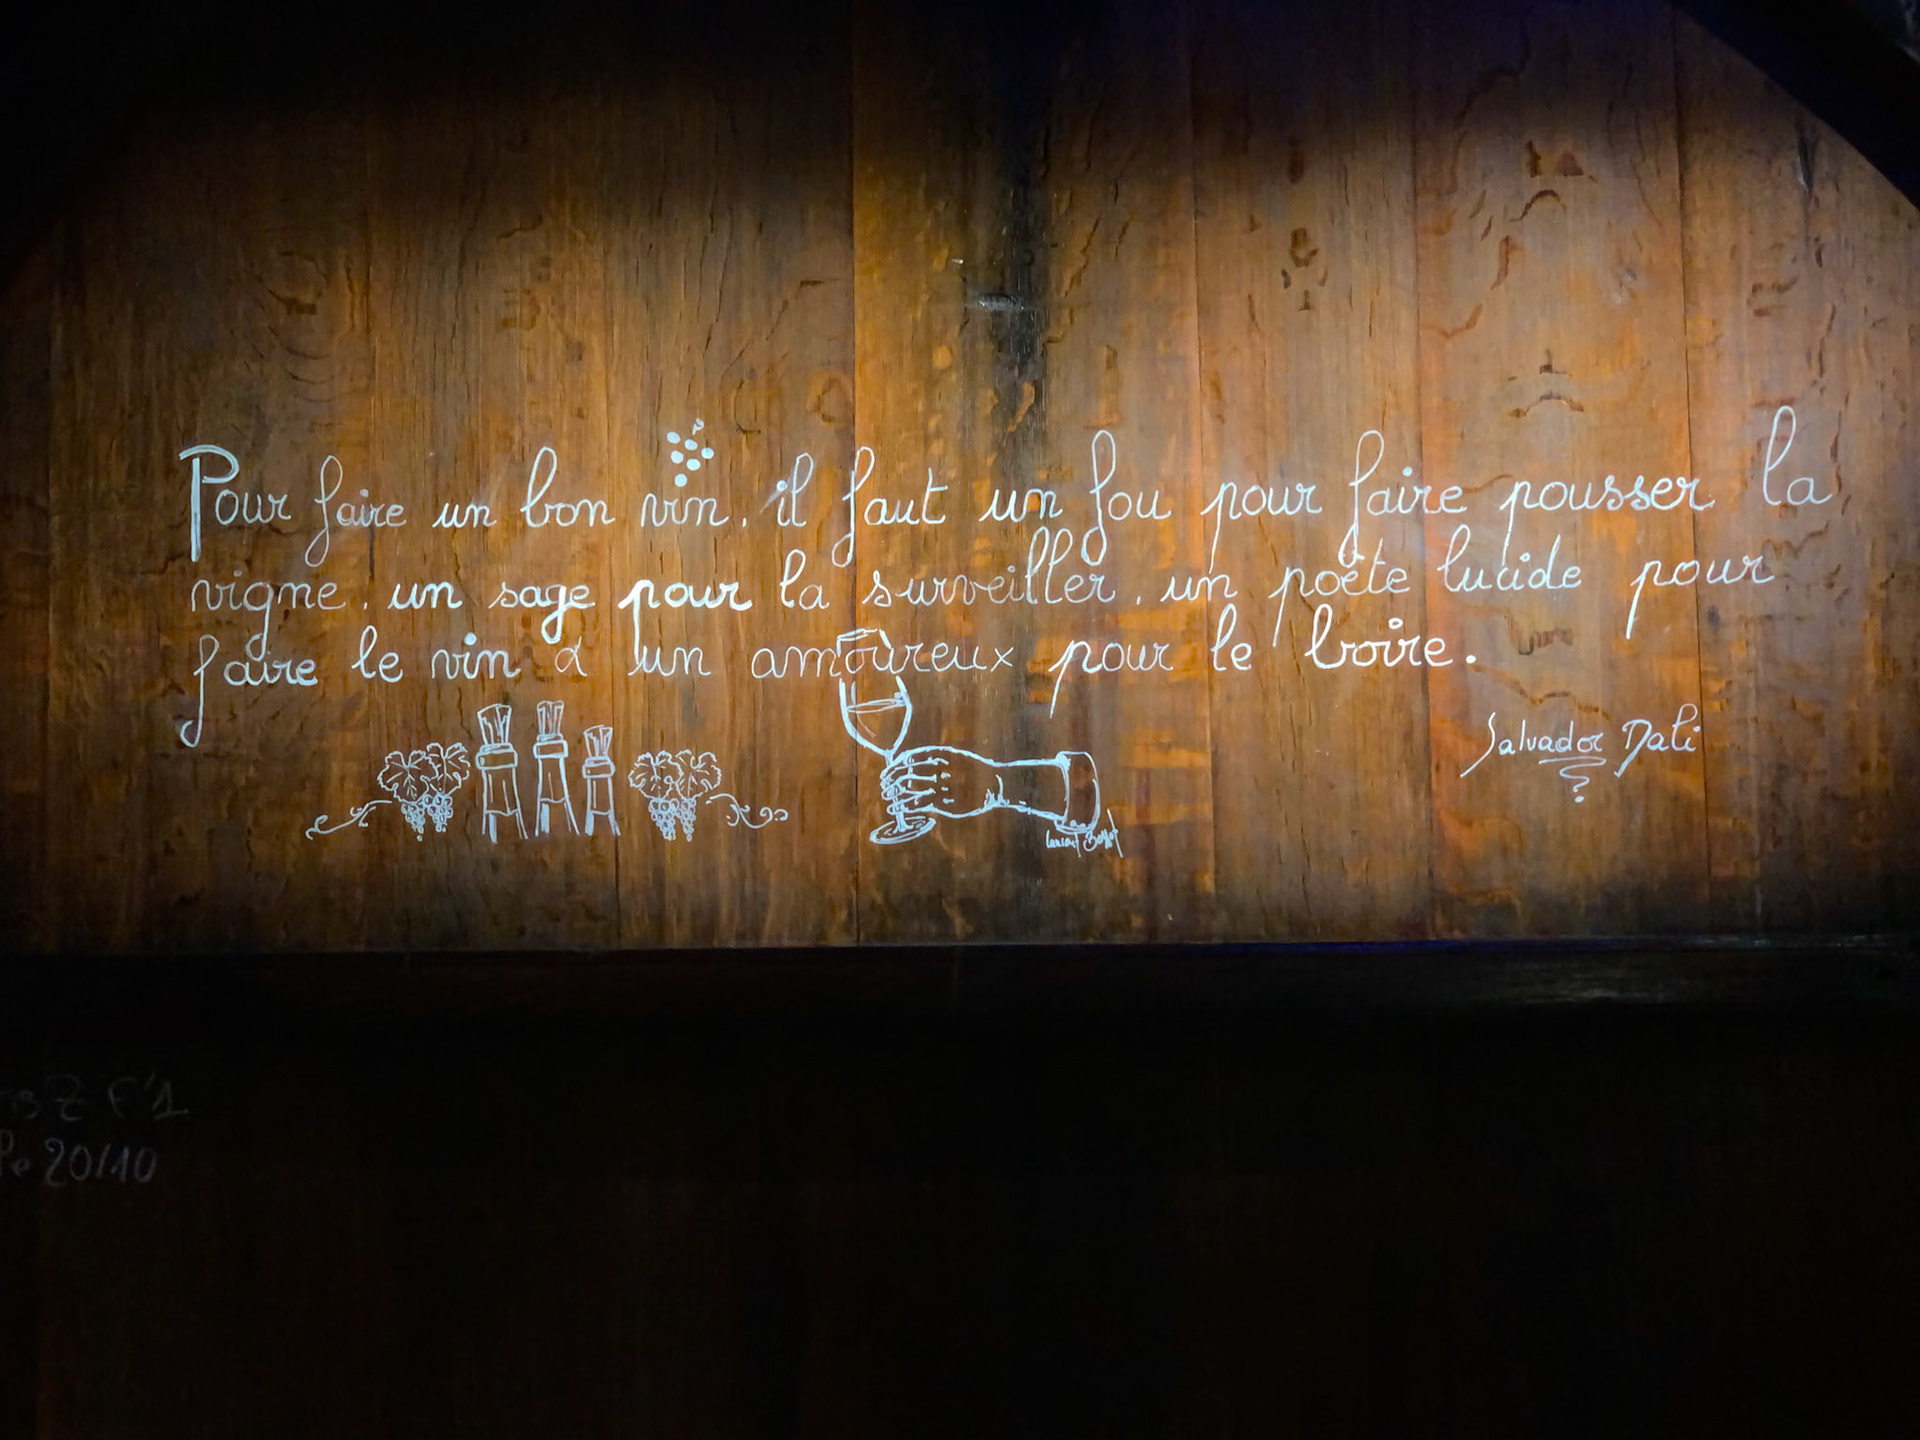 Pour faire un bon vin, il faut un fou pour faire pousser la
vigne, un sage pour la surveiller, un poète lucide pour
faire le vin & un amoureux pour le boire.
Salvador Dali
20/10